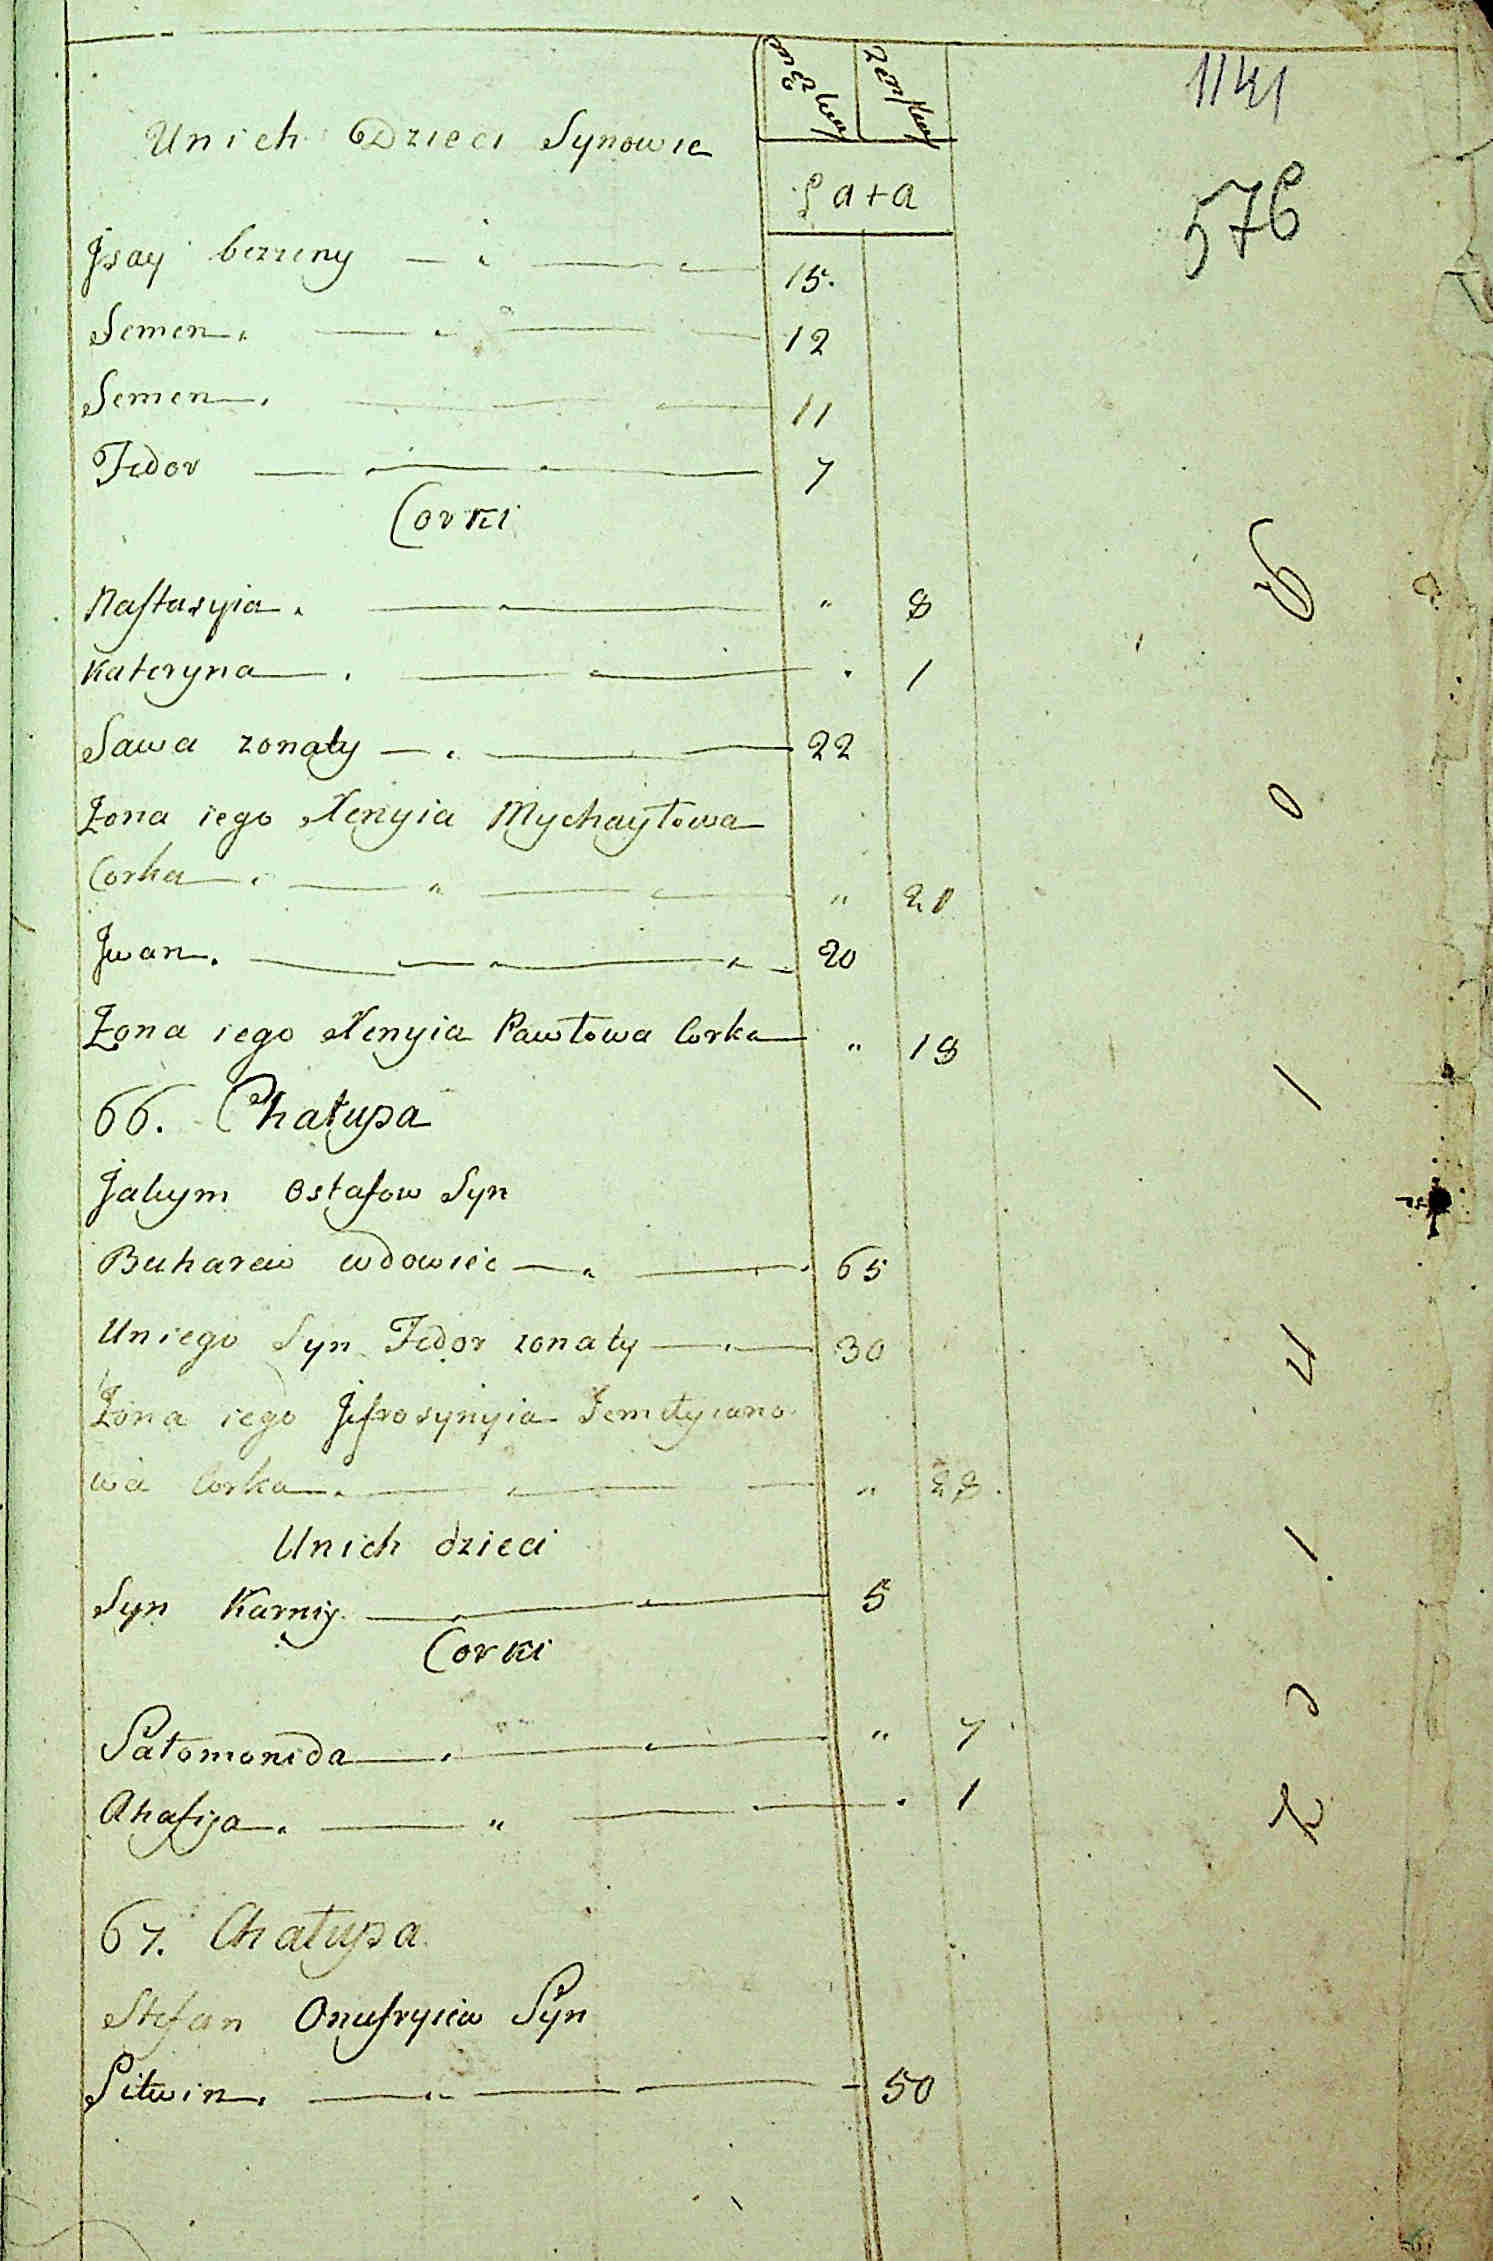 męska żenska
1141
Unich Dzieci Synowie
Lata
576
Jsay bezzeny 15.
Semen. 12
Semen. 11
Fedor 7
Corki
Nastasyia. " 8
Kateryna. 1
Sawa zonaty 22
Żona iego Xenyia Mychayłowa
Corka " 21
Jwan. 20
Żona iego Xenyia Pawłowa Corka " 18
66. Chałupa
Jakym Ostafow Syn
Buharew wdowiec 65
Uniego Syn Fedor zonaty 30
Żona iego Jefrosynyia
wa Corka. " 28.
Unich dzieci
Syn Karniy. 5
Corki
Sałomonida " 7
Ahafija. 1
67. Chałupa.
Stefan Onufryiew Syn
Litwin. 50